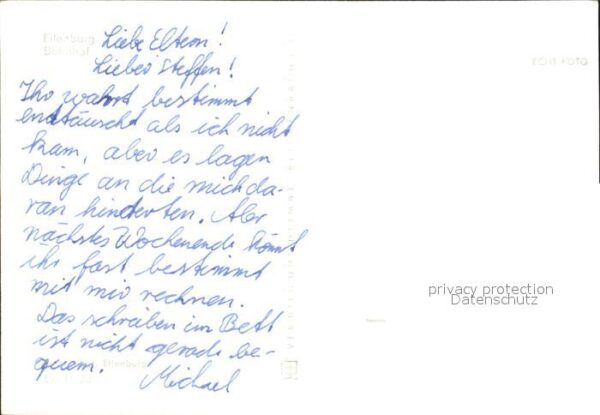 Eilenburg
Bahnhof
Liebe Eltern!
Lieber Steffen!
Ihr wahrt bestimmt
endtäuscht als ich nicht
kam, aber es lagen
Dinge an die mich da-
ran hinderten. Aber
nächstes Wochenende könnt
ihr fast bestimmt
mit mir rechnen.
Das schreiben im Bett
ist nicht gerade be-
quem. Michael
Eilenburg
ECHT FOTO
privacy protection
Datenschutz